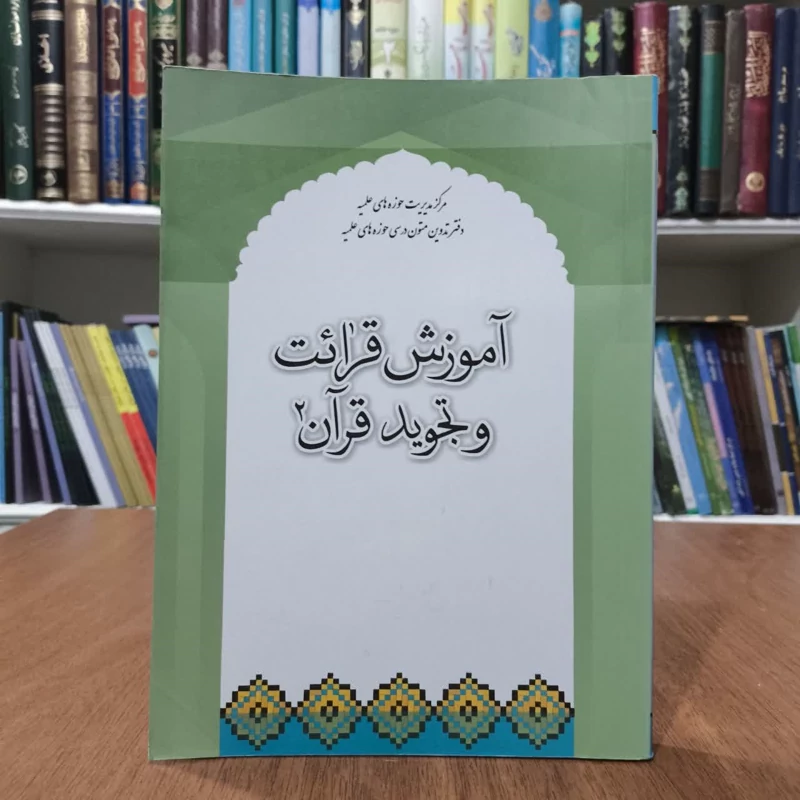 مرکز مدیریت حوزه های علمیه
دفتر تدوین متون درسی حوزه های علمیه
آموزش قرائت
و تجوید قرآن ۲